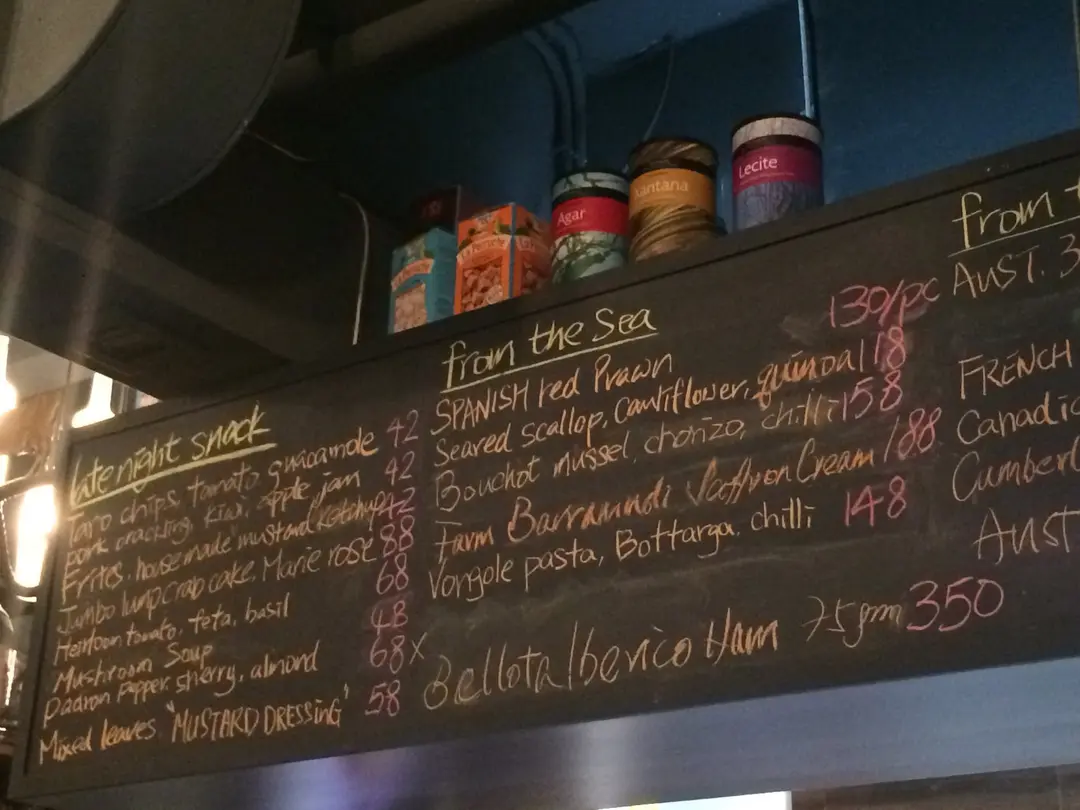 Lecite
Xantana
Agar
La Perruche
late night snack
Taro chips, tomato guacamole 42
pork cracking, kiwi, apple jam 42
Frites, house made mustard ketchup 42
Jumbo lump crab cake, Marie rose 88
Heirloom tomato, feta, basil 68
Mushroom Soup 48
padron pepper, sherry, almond 68 x
Mixed leaves "MUSTARD DRESSiNG" 58
from the Sea
SPANISH red Prawn 130/pc
Seared scallop, cauliflower, quinoa 118
Bouchot mussel, chorizo, chilli 158
Farm Barramundi Saffron Cream 188
Vongole pasta, Bottarga, chilli 148
Bellota Iberico Ham 75gm 350
from
AUST. 3
FRENCH
AUST